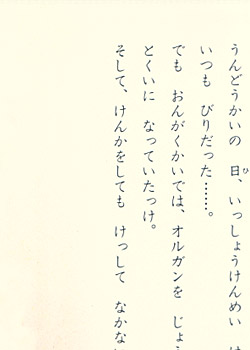 うんどうかいの 日、いっしょうけんめい
いつも びりだった……。
でも おんがくかいでは、オルガンを じょう
とくいに なっていたっけ。
そして、けんかをしても けっして なかな